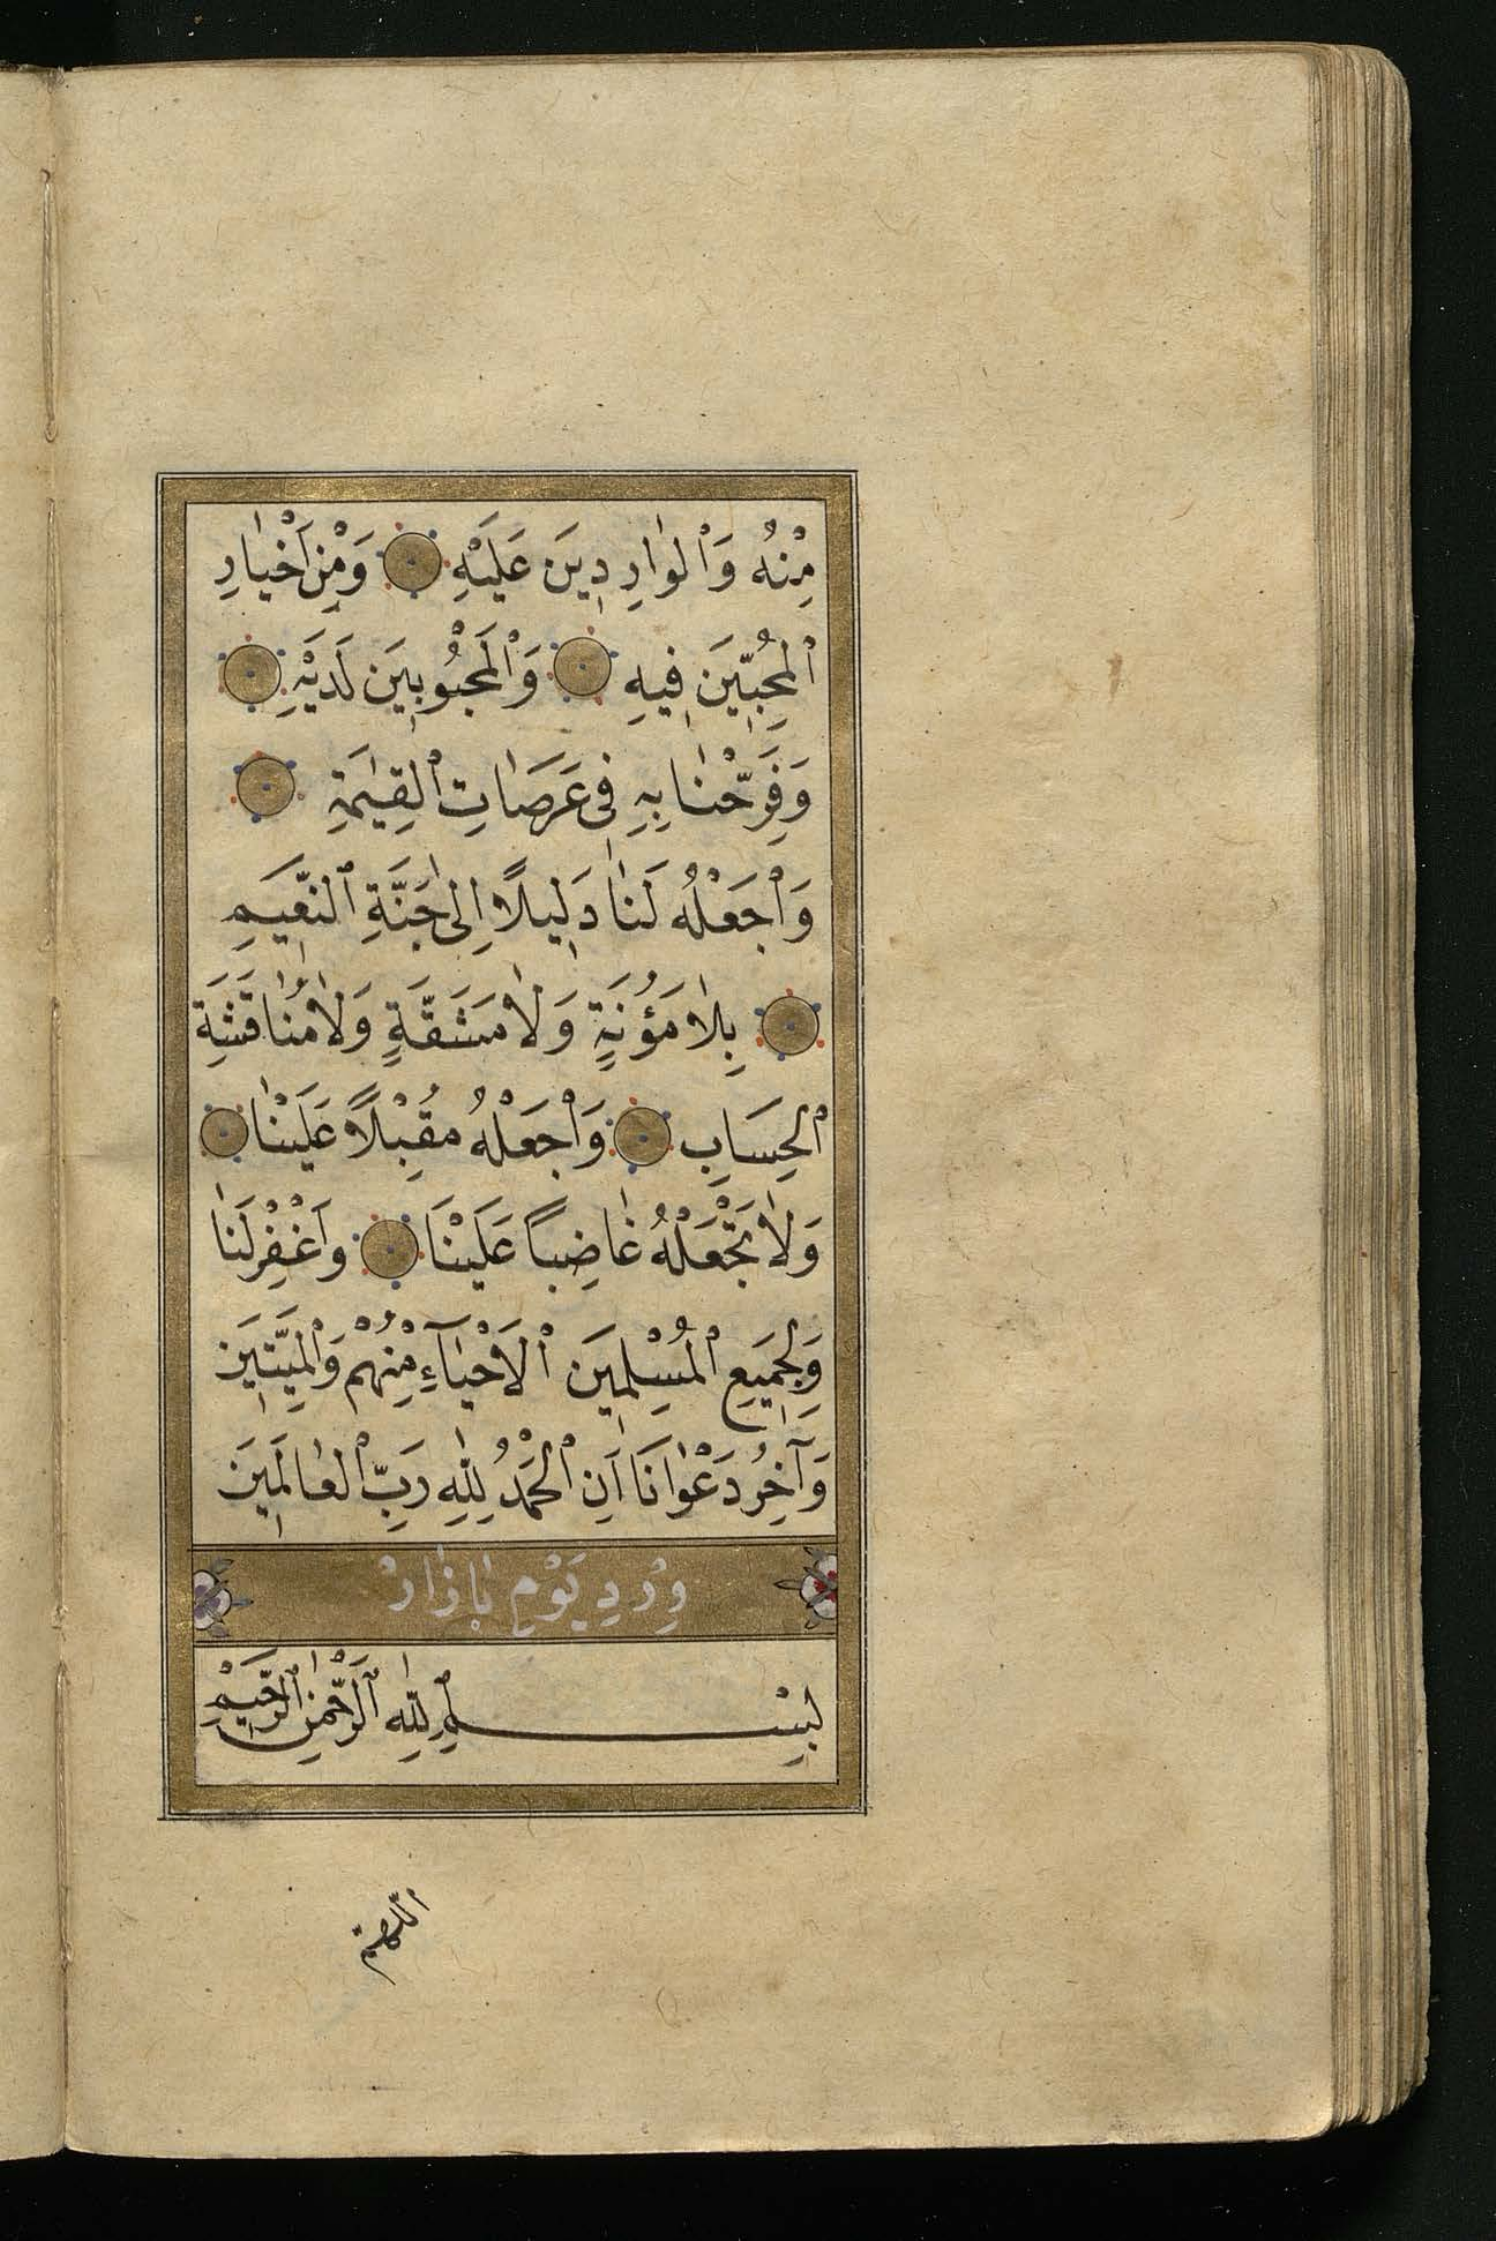 مِنْهُ وَٱلْوَارِدِينَ عَلَيْهِ وَمِنْ أَخْيَارِ
ٱلْمُحِبِّينَ فِيهِ وَٱلْمَحْبُوبِينَ لَدَيْهِ
وَفَرِّحْنَا بِهِ فِى عَرَصَاتِ ٱلْقِيٰمَةِ
وَٱجْعَلْهُ لَنَا دَلِيلًا اِلٰى جَنَّةِ ٱلنَّعِيمِ
بِلَا مَؤُنَةٍ وَلَا مَشَقَّةٍ وَلَا مُنَاقَشَةِ
ٱلْحِسَابِ وَٱجْعَلْهُ مُقْبِلًا عَلَيْنَا
وَلَا تَجْعَلْهُ غَاضِبًا عَلَيْنَا وَاغْفِرْ لَنَا
وَلِجَمِيعِ ٱلْمُسْلِمِينَ ٱلْأَحْيَآءِ مِنْهُمْ وَٱلْمَيِّتِينَ
وَآخِرُ دَعْوَانَا اَنِ ٱلْحَمْدُ لِلّٰهِ رَبِّ ٱلْعَالَمِينَ
وِرْدِ يَوْمِ بَازَارْ
بِسْمِ ٱللّٰهِ ٱلرَّحْمٰنِ ٱلرَّحِيمِ
اللّهمّ